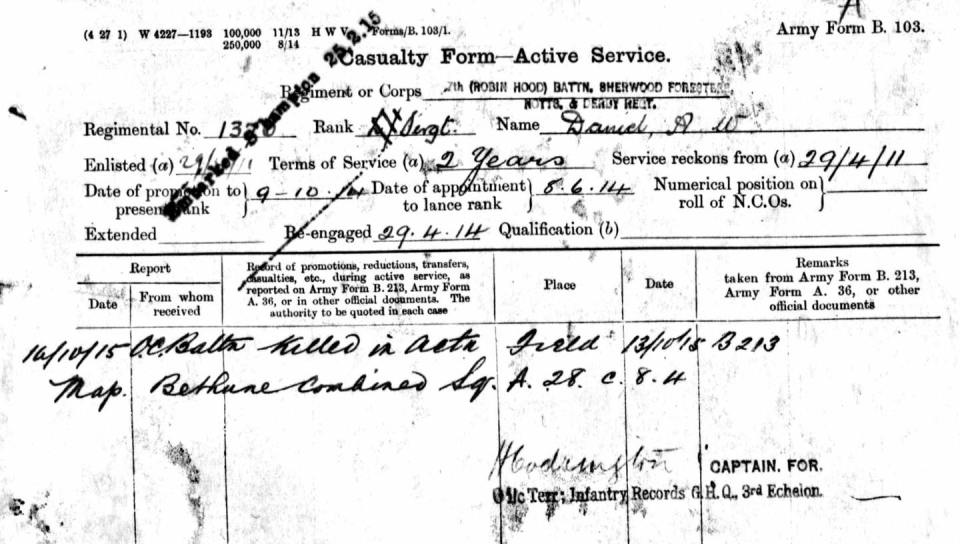 (4 27 1) W 4227—1193 100,000 11/13 H W V Forms/B. 103/1.
250,000 8/14
Army Form B. 103.
Casualty Form—Active Service.
Embarked S'hampton 25.2.15
Regiment or Corps 7th (ROBIN HOOD) BATTN. SHERWOOD FORESTERS,
NOTTS. & DERBY REGT.
Regimental No. Rank Sergt. Name Daniel, A W
Enlisted (a) Terms of Service (a) 2 Years Service reckons from (a) 29/4/11
Date of promotion to present rank 9-10-14 Date of appointment to lance rank 8.6.14 Numerical position on roll of N.C.Os.
Extended Re-engaged 29.4.14 Qualification (b)
Report
Date
From whom received
Record of promotions, reductions, transfers,
casualties, etc., during active service, as
reported on Army Form B. 213, Army Form
A. 36, or in other official documents. The
authority to be quoted in each case
Place
Date
Remarks
taken from Army Form B. 213,
Army Form A. 36, or other
official documents
16/10/15 O.C. Battn Killed in Actn Field 13/10/15 B213
Map. Bethune Combined Sq. A. 28. c. 8.4
CAPTAIN. FOR.
O i/c Terr; Infantry Records G.H.Q., 3rd Echelon.